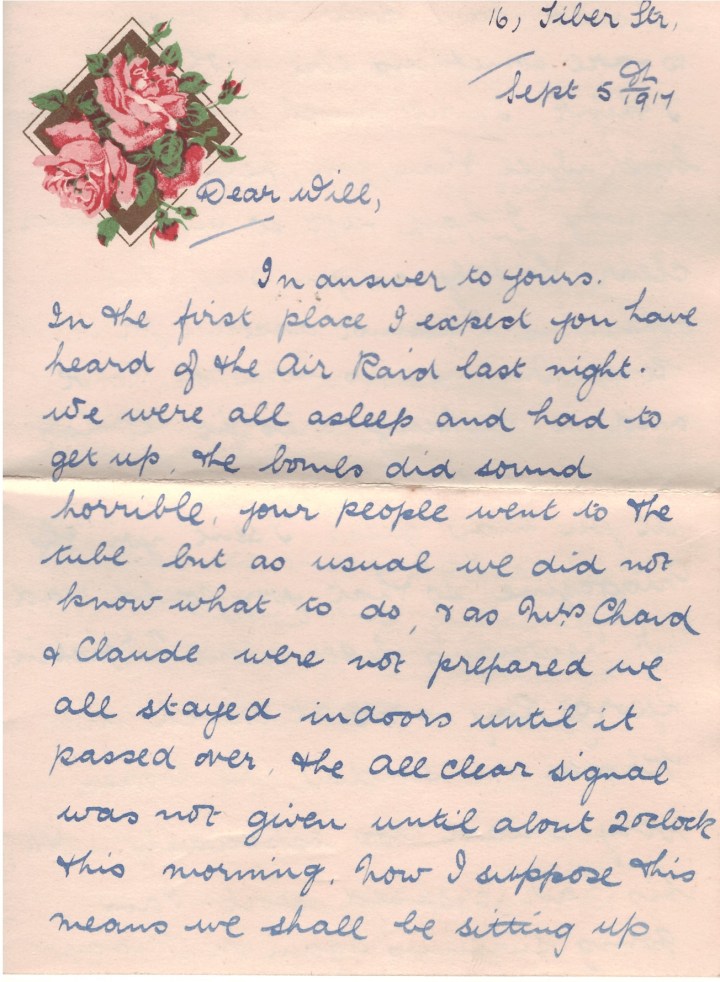 16, Tiber Str,
Sept 5th 1917
Dear Will,
In answer to yours.
In the first place I expect you have
heard of the Air Raid last night.
We were all asleep and had to
get up, the bombs did sound
horrible, your people went to the
tube but as usual we did not
know what to do, & as Mrs Chard
& Claude were not prepared we
all stayed indoors until it
passed over, the all clear signal
was not given until about 2oclock
this morning. Now I suppose this
means we shall be sitting up